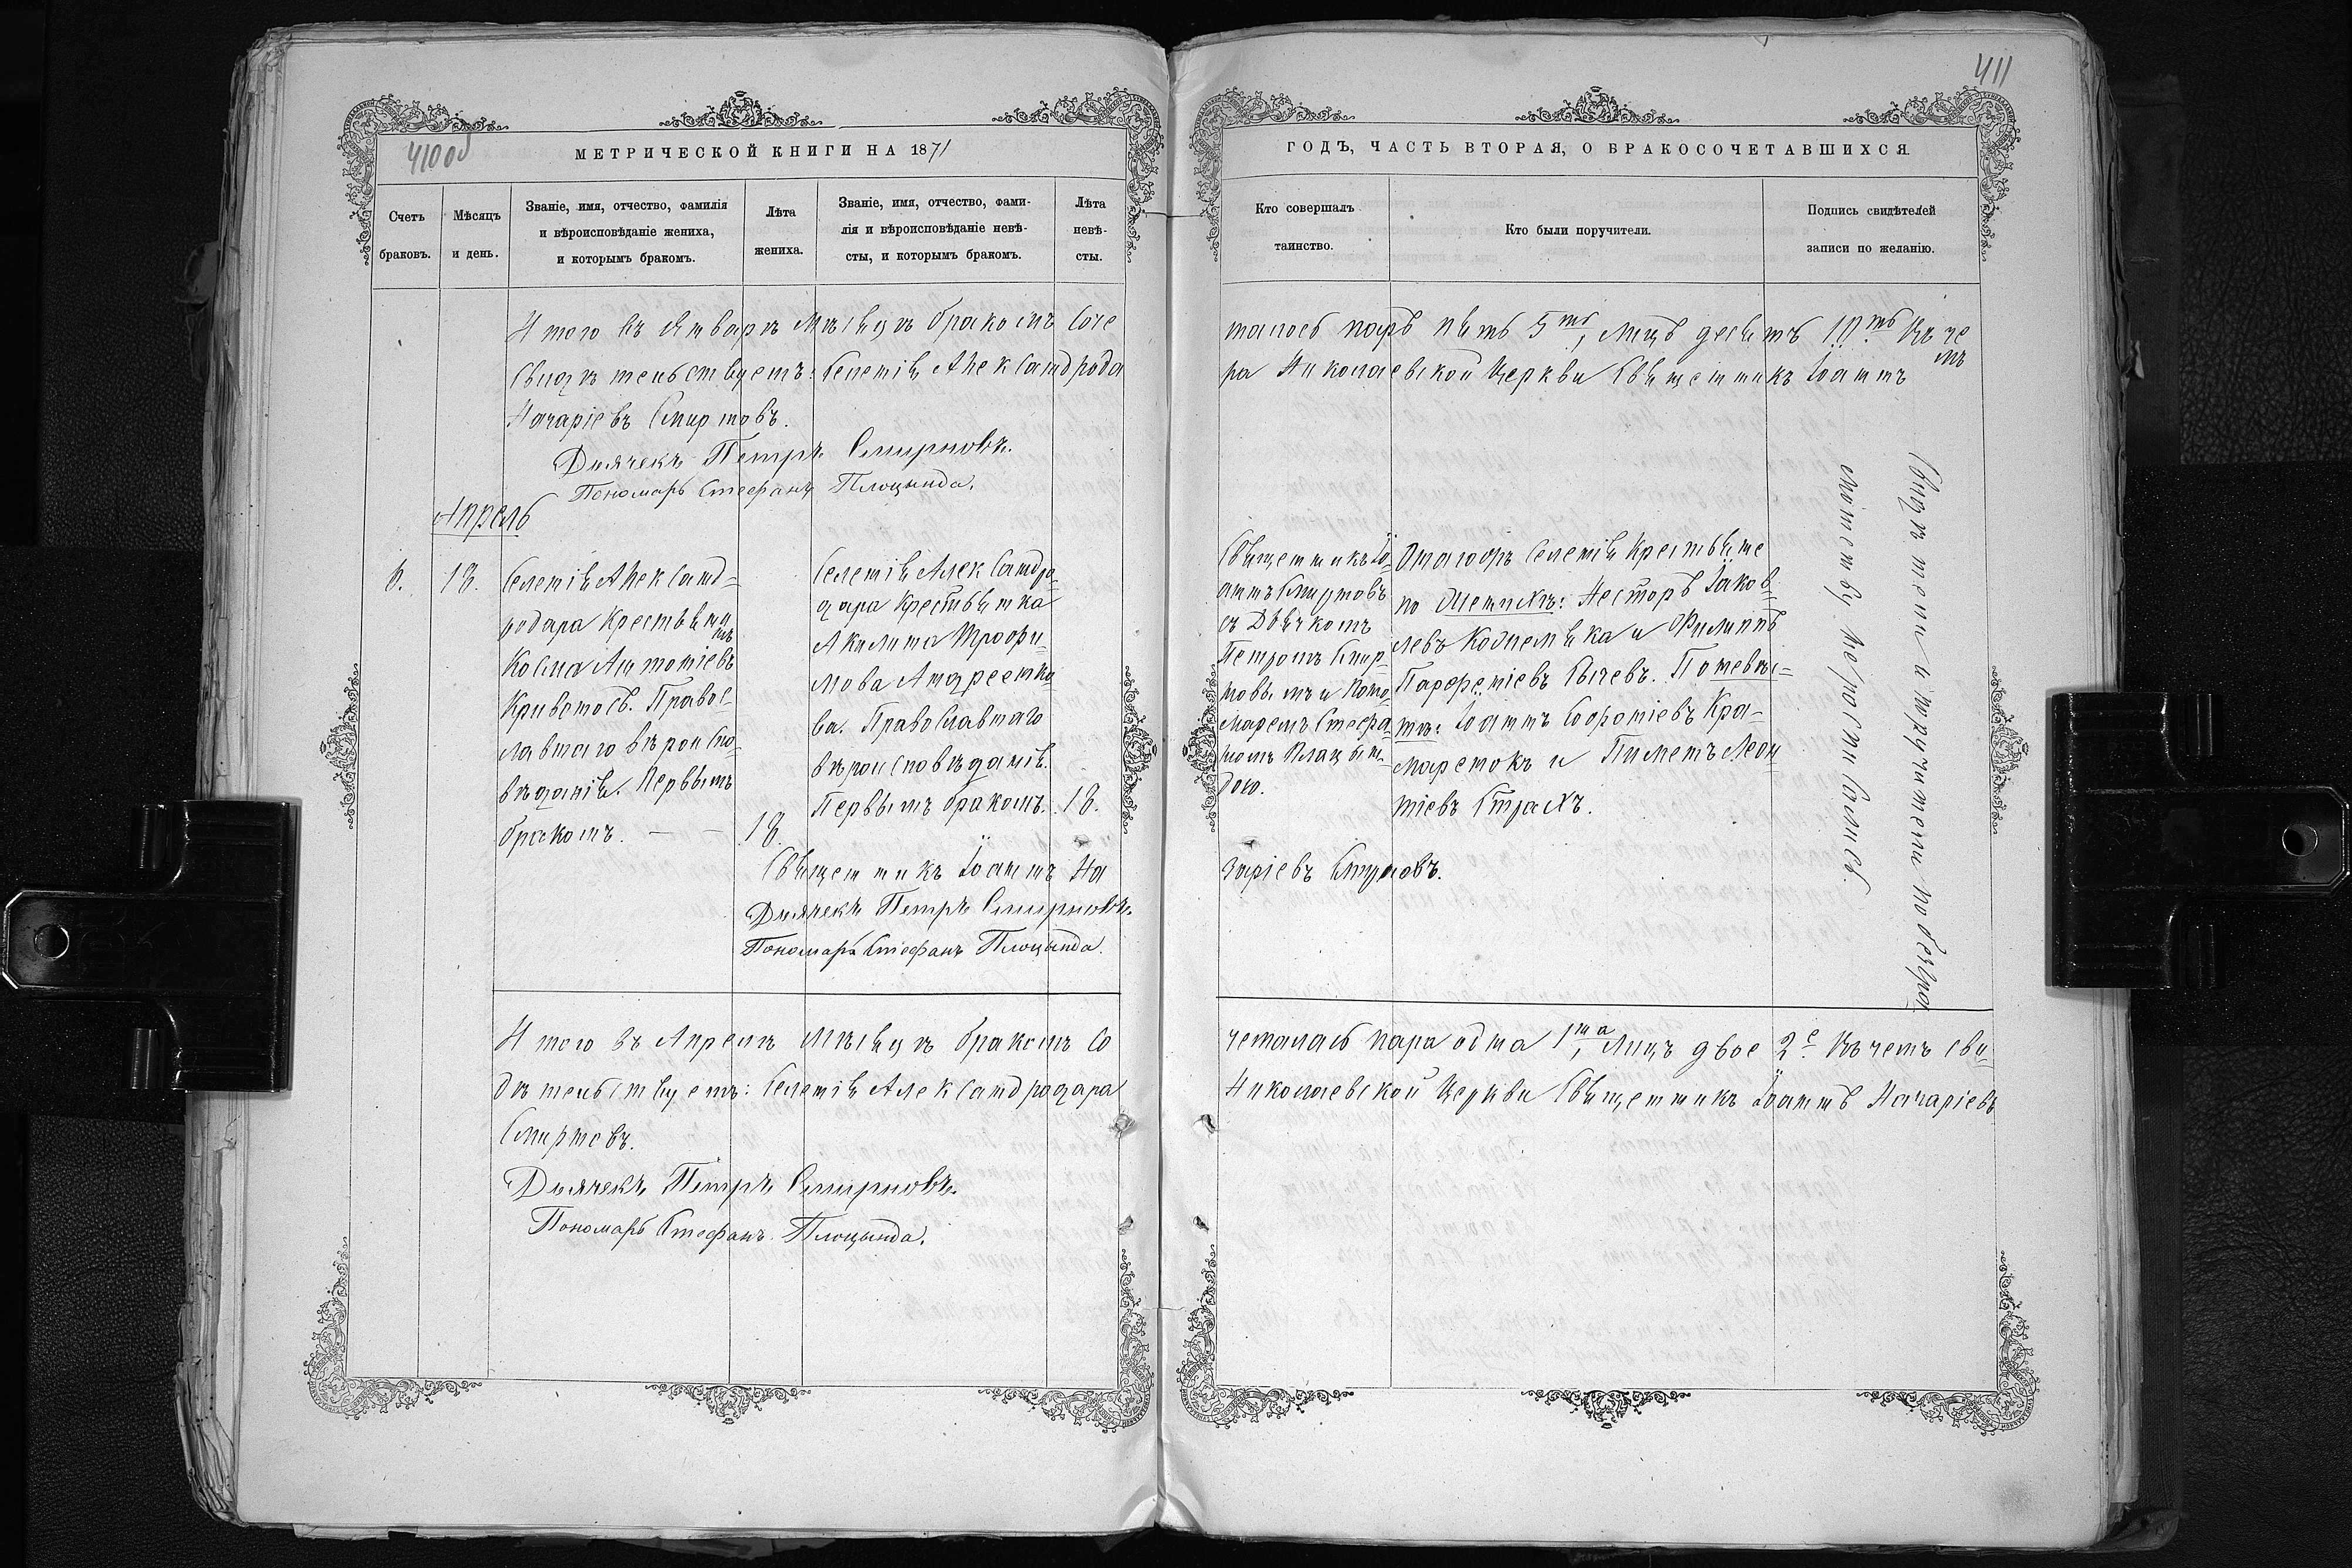 410 об
МЕТРИЧЕСКОЙ КНИГИ НА 1871
Счетъ
браковъ.
Мѣсяцъ
и день.
Званіе, имя, отчество, фамилія
и вѣроисповѣданіе жениха,
и которымъ бракомъ.
Лѣта
жениха.
Званіе, имя, отчество, фами-
лія и вѣроисповѣданіе невѣ-
сты, и которымъ бракомъ.
Лѣта
невѣ-
сты.
Итого въ Январѣ Мѣсяцѣ бракомъ Соче
Свидѣтельствуетъ: Селенія Александрода
Назаріевъ Смирновъ.
Дьячекъ Петръ Смирновъ.
Пономарь Стефанъ Плоцында.
Апрель
6.
18.
Селенія Александ-
родара Крестьяни
нъ
Косма Антоніевъ
Кривоносъ. Правос-
лавнаго вѣроиспо-
вѣданія. Первымъ
бракомъ. — —
18.
Селенія Александро-
дара Крестьянка
Акилина Трофи-
мова Андреенко
ва. Православнаго
вѣроисповѣданія.
Первымъ бракомъ.
18.
Священникъ Іоаннъ На
Дьячекъ Петръ Смирновъ.
Пономарь Стефанъ Плоцында.
Итого въ Апрелѣ Мѣсяцѣ бракомъ Со
дѣтельствуетъ: Селенія Александродара
Смирновъ.
Дьячекъ Петръ Смирновъ.
Пономарь Стефанъ Плоцында.
411
ГОДЪ, ЧАСТЬ ВТОРАЯ, О БРАКОСОЧЕТАВШИХСЯ.
Кто совершалъ
таинство.
Кто были поручители.
Подпись свидѣтелей
записи по желанію.
талось паръ пять 5ть, лицъ десять 10ть Въ че
мъ
ра Николаевской Церкви Священникъ Іоаннъ
Священникъ Іо-
аннъ Смирновъ
съ Дьячкомъ
Петромъ Смир-
новымъ и Поно-
маремъ Стефа-
номъ Плацын-
дою.
Онагооръ Селенія Крестьяне
по Женихѣ: Несторъ Іаков-
левъ Коднемяка и Филиппъ
Парфеніевъ Сычевъ. По невѣс-
тѣ: Іоаннъ Софроніевъ Кра-
маренокъ и Пименъ Леон-
тіевъ Страхъ.
Свидѣтели и поручители по безгра-
мотству не росписались.
заріевъ Смирновъ.
четалась пара одна 1на, Лицъ двое 2е. Въ чемъ сви-
Николаевской Церкви Священникъ Іоаннъ Назаріевъ